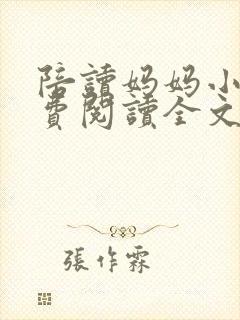 陪讀妈妈小
費閱讀全文
張作霖